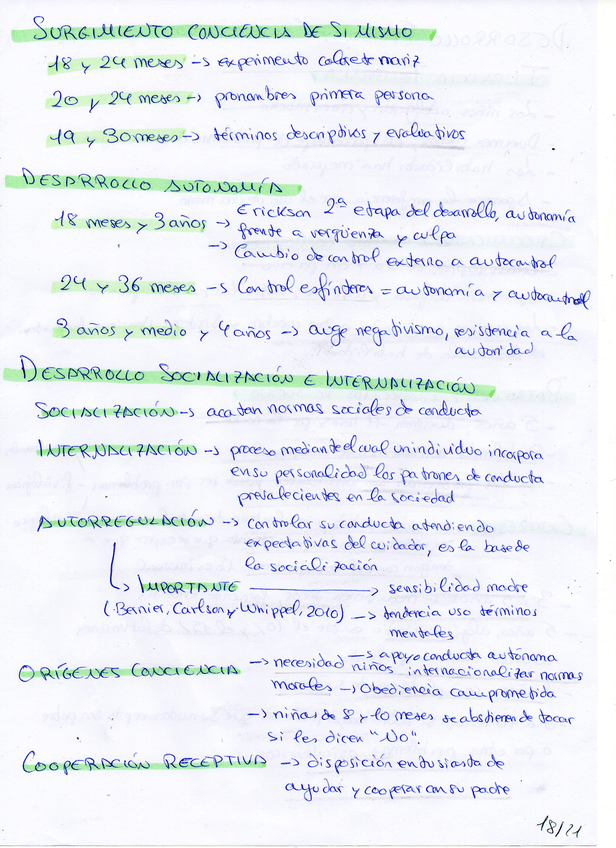 SURGIMIENTO CONCIENCIA DE SI MISMO
18 y 24 meses → experimento colorete nariz
20 y 24 meses → pronombres primera persona
19 y 30 meses → términos descriptivos y evaluativos
DESARROLLO AUTONOMÍA
18 meses y 3 años → Erickson 2ª etapa del desarrollo, autonomía
frente a vergüenza y culpa
→ Cambio de control externo a autocontrol
24 y 36 meses → Control esfínteres = autonomía y autocontrol
3 años y medio y 4 años → auge negativismo, resistencia a la
autoridad
DESARROLLO SOCIALIZACIÓN E INTERNALIZACIÓN
SOCIALIZACIÓN → acatan normas sociales de conducta
INTERNALIZACIÓN → proceso mediante el cual un individuo incorpora
en su personalidad los patrones de conducta
prevalecientes en la sociedad
AUTORREGULACIÓN → controlar su conducta atendiendo
expectativas del cuidador, es la base de
la socialización
↳ IMPORTANTE → sensibilidad madre
(Bernier, Carlson y Whippel, 2010) → tendencia uso términos
mentales
→ apoyo conducta autónoma
ORÍGENES CONCIENCIA → necesidad niños internacionalizar normas
morales → Obediencia comprometida
→ niños de 8 y 10 meses se abstienen de tocar
si les dicen "No".
COOPERACIÓN RECEPTIVA → disposición entusiasta de
ayudar y cooperar con su padre
18/21